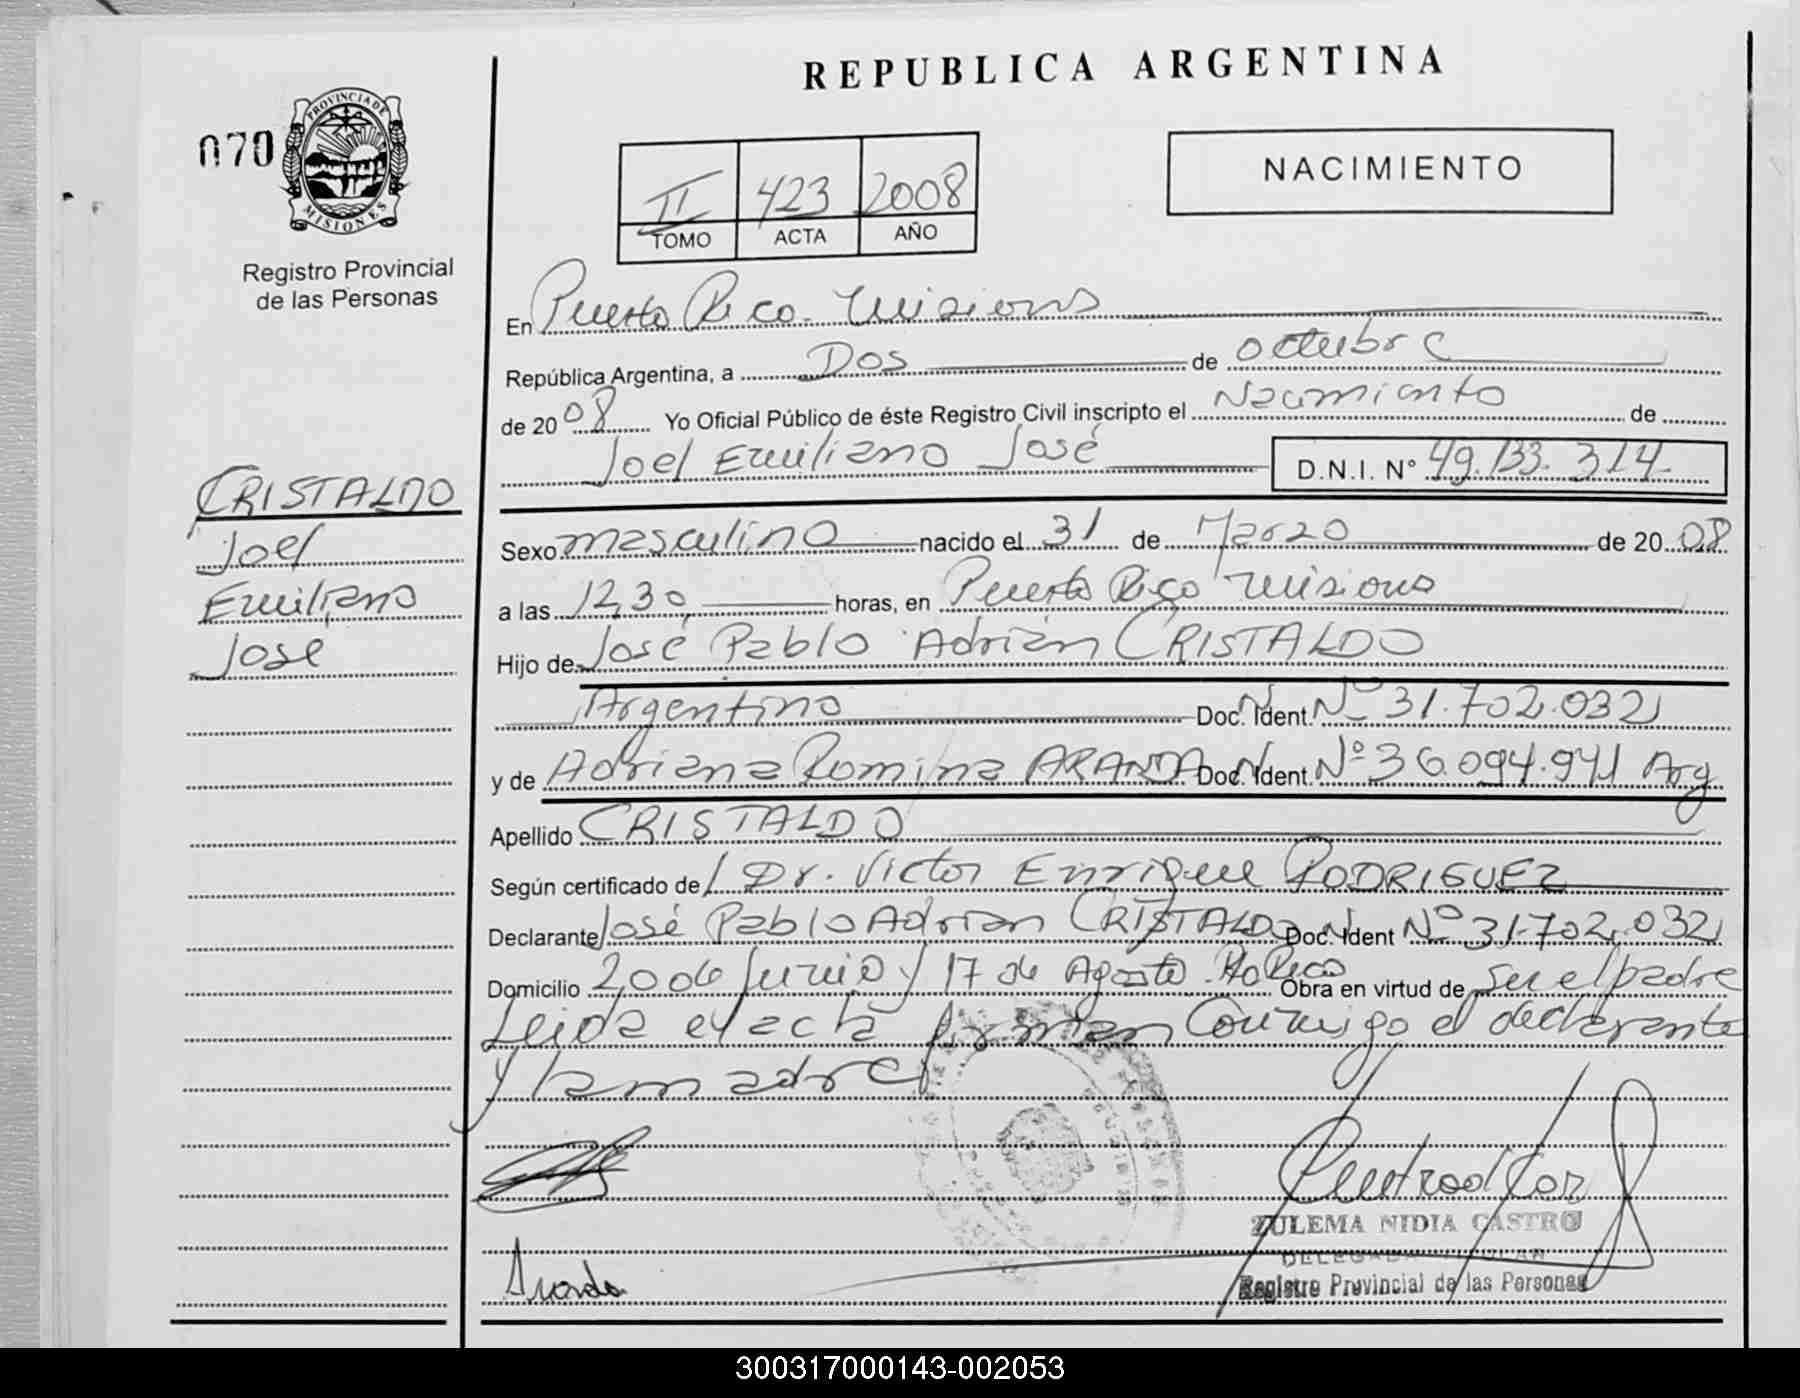 REPUBLICA ARGENTINA
070
PROVINCIA DE
MISIONES
Registro Provincial
de las Personas
II 423 2008
TOMO ACTA AÑO
NACIMIENTO
En Puerto Rico. Misiones
República Argentina, a Dos de octubre
de 2008 Yo Oficial Público de éste Registro Civil inscripto el Nacimiento de
Joel Emiliano José D.N.I. N° 49.133.314
CRISTALDO
Joel
Emiliano
José
Sexo masculino nacido el 31 de Marzo de 2008
a las 12,30 horas, en Puerto Rico Misiones
Hijo de José Pablo Adrián CRISTALDO
Argentino Doc. N. Ident. Nº 31.702.032
y de Adriana Romina ARANDA Doc. N. Ident. Nº 36.094.941 Arg
Apellido CRISTALDO
Según certificado de Dr. Victor Enrique RODRIGUEZ
Declarante José Pablo Adrian CRISTALDO Doc. N. Ident Nº 31.702.032
Domicilio 20 de Junio y 17 de Agosto. Pto Rico Obra en virtud de ser el padre
Leida el acta firman Conmigo el declarante
y la madre
ZULEMA NIDIA CASTRO
DELEGADA TITULAR
Registro Provincial de las Personas
300317000143-002053